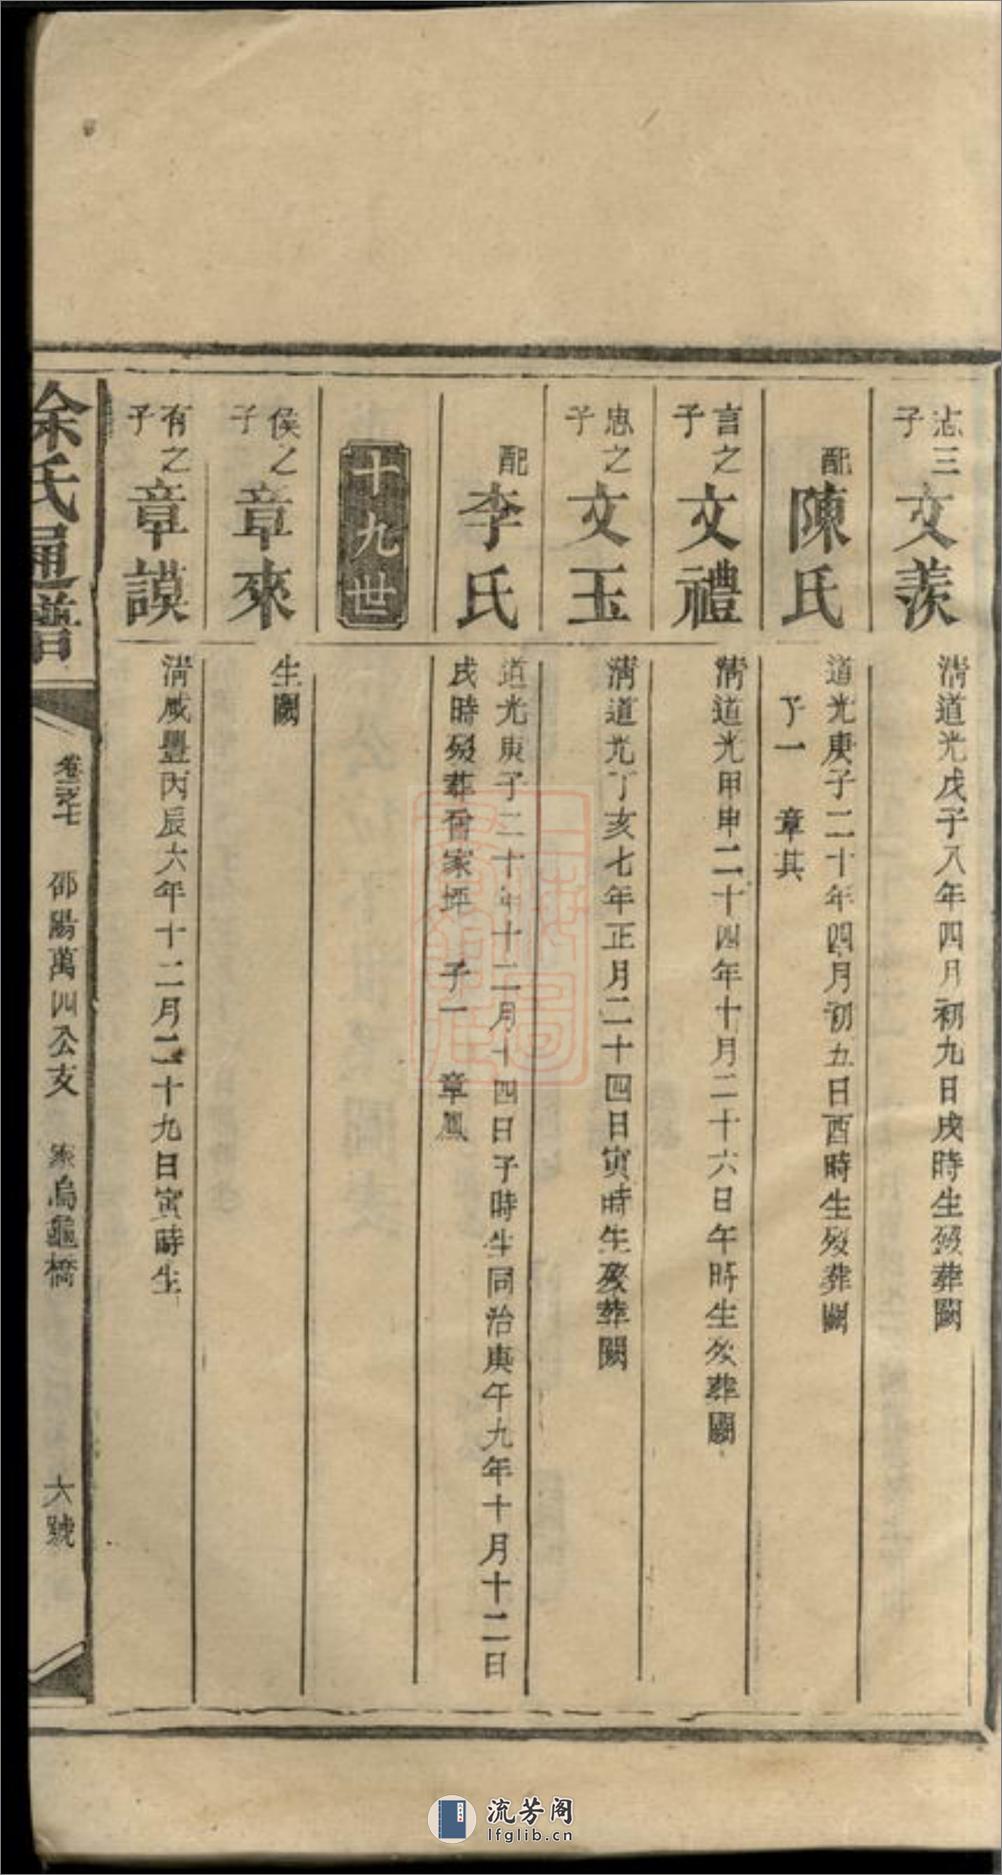 志三子
文羨
清道光戊子八年四月初九日戌時生歿葬闕
配
陳氏
道光庚子二十年四月初五日酉時生歿葬闕
子一 章其
言之子
文禮
清道光甲申二十四年十月二十六日午時生歿葬闕
忠之子
文玉
清道光丁亥七年正月二十四日寅時生歿葬闕
配
李氏
道光庚子二十年十二月十四日子時生同治庚午九年十月十二日
戌時歿葬曾家坪 子一 章鳳
十九世
侯之子
章來
生闕
有之子
章謨
清咸豐丙辰六年十二月二十九日寅時生
氏通譜
卷之七 邵陽萬四公支 烏龜橋 六號
流芳阁
lfglib.cn